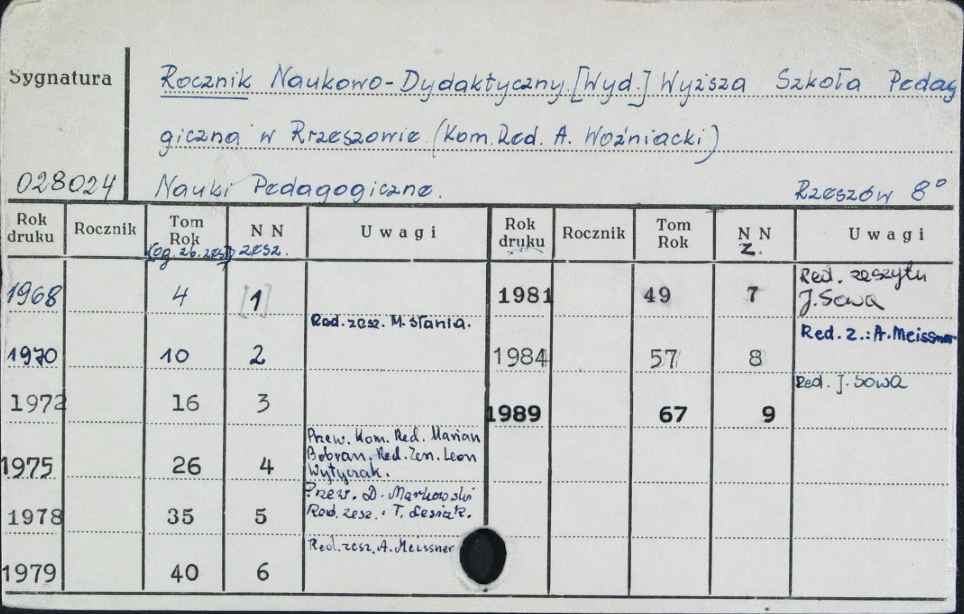 Sygnatura
Rocznik Naukowo-Dydaktyczny. [Wyd.] Wyższa Szkoła Pedag
giczna w Rrzeszowie (Kom. Red. A. Woźniacki)
028024 Nauki Pedagogiczne. Rzeszów 8°
Rok druku Rocznik Tom Rok (Og. zb. zesz) N N zesz. Uwagi Rok druku Rocznik Tom Rok N N z. Uwagi
1968 4 [1]
1970 10 2 Red. zesz. M. Stania.
1972 16 3
1975 26 4 Przew. Kom. Red. Marian Bobran. Red. Zen. Leon
1978 35 5 Przew. D. Markowski Red. zesz.: T. Lesiak.
1979 40 6 Red. zesz. A. Meissner
1981 49 7 Red. zeszytu J. Sowa
1984 57 8 Red. z.: A. Meissner
1989 67 9 Red. J. Sowa